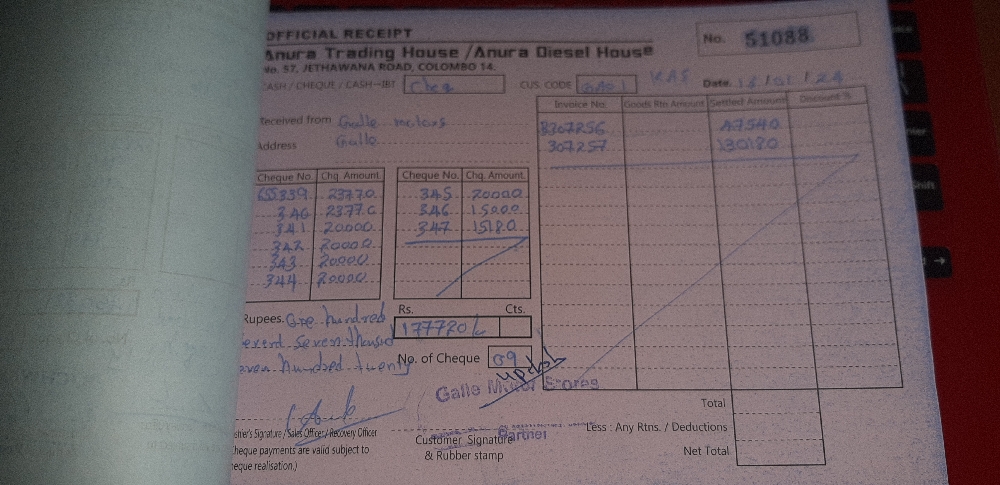 OFFICIAL RECEIPT
No. 51088
Anura Trading House / Anura Diesel House
No. 57, JETHAWANA ROAD, COLOMBO 14.
CASH / CHEQUE / CASH-IBT Cheq CUS. CODE KAS Date. / /24
Received from Galle motors
Address Galle
Invoice No. Goods Rtn Amount Settled Amount Discount %
B307256 47540
307257 130180
Cheque No. Chq. Amount. Cheque No. Chq. Amount.
655339 23770 345 20000
340 23770 346 15000
341 20000 347 15180
342 20000
343 20000
344 20000
Rupees. One hundred
seven Seven thousand
seven hundred twenty
Rs. Cts.
177720/-
No. of Cheque 09
Galle Motor Stores
Partner
Cashier's Signature / Sales Officer / Recovery Officer
Customer Signature
& Rubber stamp
Cheque payments are valid subject to
cheque realisation.)
Total
Less : Any Rtns. / Deductions
Net Total